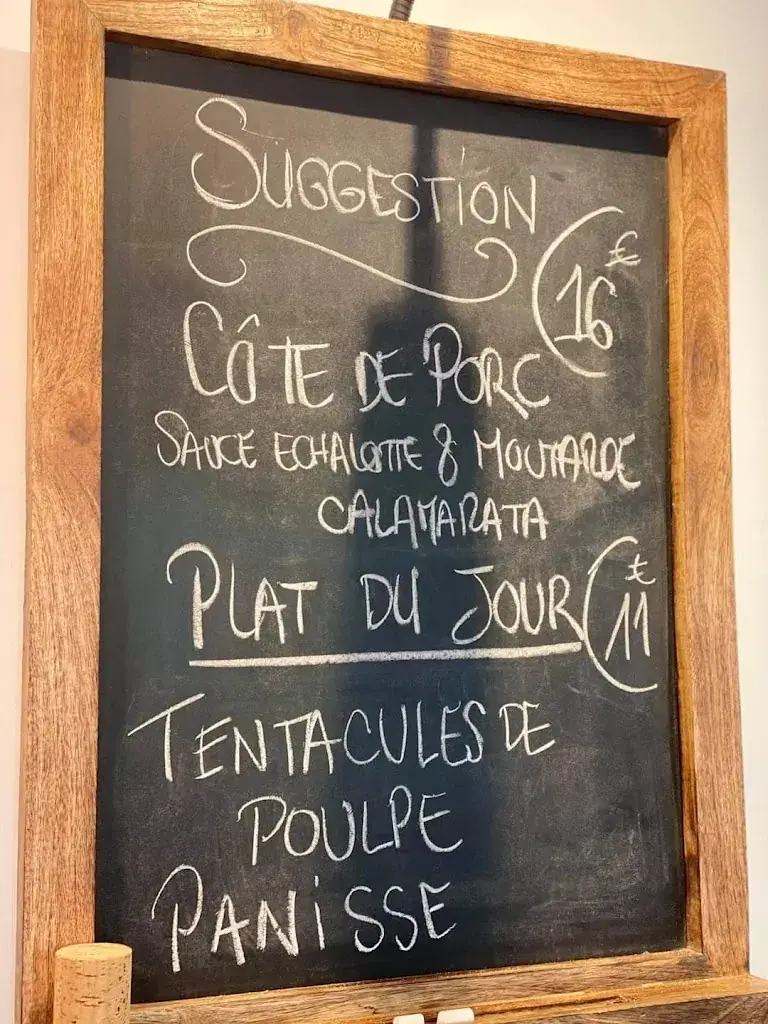 SUGGESTION
16€
CÔTE DE PORC
SAUCE ECHALOTTE & MOUTARDE
CALAMARATA
PLAT DU JOUR
11€
TENTACULES DE
POULPE
PANiSSE